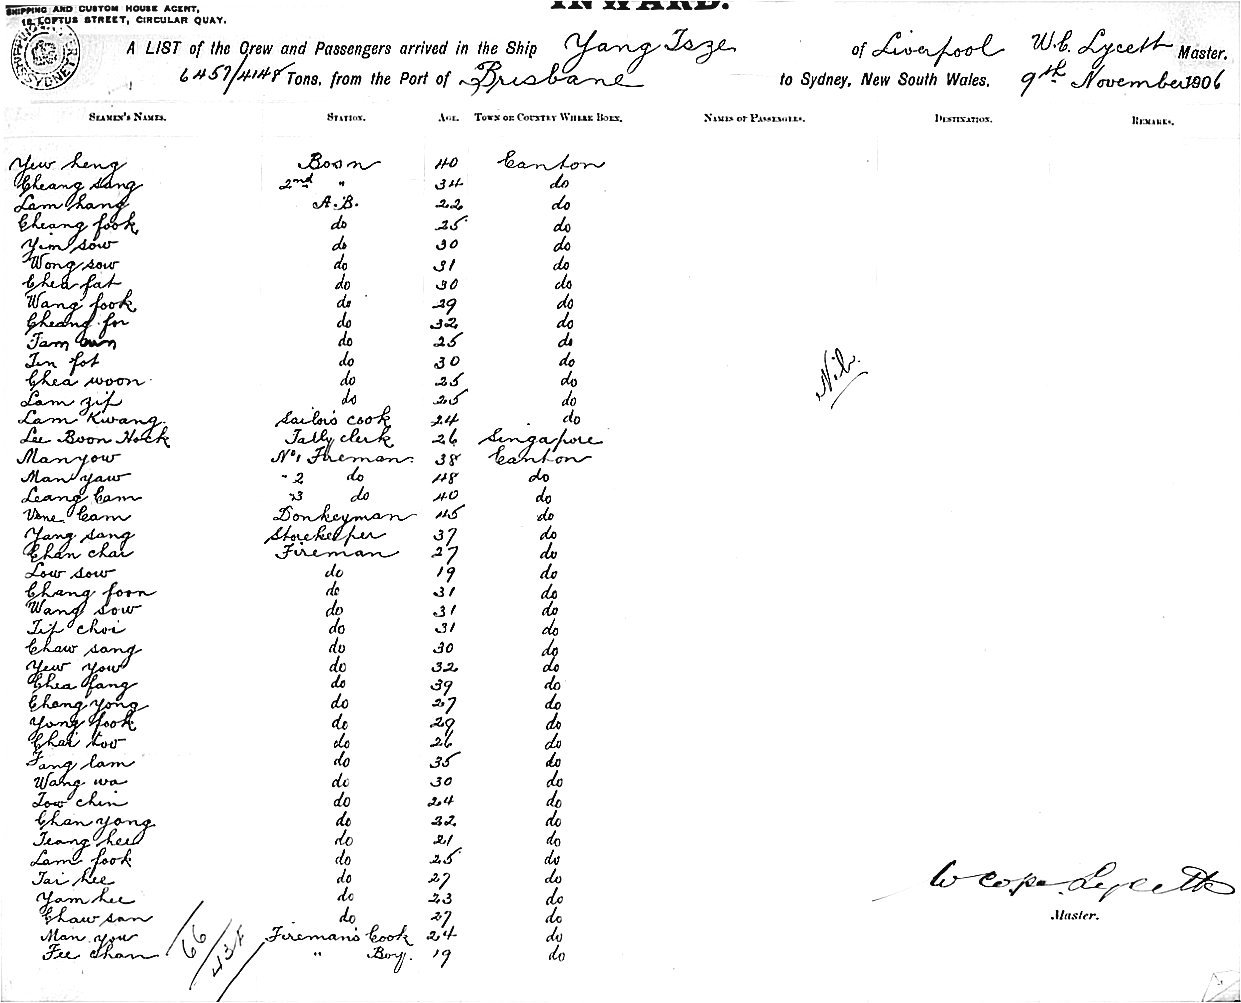 INWARD.
SHIPPING AND CUSTOM HOUSE AGENT,
18 LOFTUS STREET, CIRCULAR QUAY.
A LIST of the Crew and Passengers arrived in the Ship Yang Tsze of Liverpool W.C. Lycett Master.
6457/4148 Tons, from the Port of Brisbane to Sydney, New South Wales, 9th November 1906
SEAMEN'S NAMES. STATION. AGE. TOWN OR COUNTRY WHERE BORN. NAMES OF PASSENGERS. DESTINATION. REMARKS.
Yew heng Bosn 40 Canton
Cheang sang 2nd " 34 do
Lam hang A.B. 22 do
Cheang fook do 25 do
Yim sow do 30 do
Wong sow do 31 do
Chea fat do 30 do
Wang fook do 29 do
Cheang for do 32 do
Tam do 25 do
Ten fot do 30 do
Chea woon do 25 do
Lam zip do 25 do
Lam Kwang Sailor's cook 24 do
Lee Boon Hock Tally clerk 26 Singapore
Man yow No 1 Fireman 38 Canton
Man yaw " 2 do 48 do
Leang Cam "3 do 40 do
Cam Donkeyman 45 do
Yang sang Storekeeper 37 do
Chan chai Fireman 27 do
Low sow do 19 do
Chang foon do 31 do
Wang sow do 31 do
Tip choi do 31 do
Chaw sang do 30 do
Yew you do 32 do
Chea fang do 39 do
Chang yong do 27 do
Yong fook do 29 do
Chai too do 26 do
Fang lam do 35 do
Wang wa do 30 do
Tow chin do 24 do
Chan yong do 22 do
Teang hee do 21 do
Lam fook do 25 do
Tai hee do 27 do
Yam hee do 23 do
Chaw san do 27 do
Man you Fireman's Cook 24 do
Fee chan " Boy. 19 do
Nil.
W Cope Lycett
Master.
66